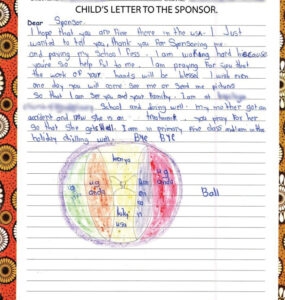 CHILD'S LETTER TO THE SPONSOR.
Dear Sponsor.
I hope that you are fine there in the USA. I Just
wanted to tell you, thank you for Sponsoring me
and paying my School fees. I am working hard because
you're so help ful to me. I am praying for you that
the work of your hands will be blessed
one day you will come see me or send me pictures
So that I can see you and your family. I am at
School and doing well. My mother got an
accident and she is on treatment, you pray for her
So that she gets well. I am in primary five class and am in the
holiday chilling well. BYE BYE
Kenya
ug
anda
ug
anda
usa
Ball